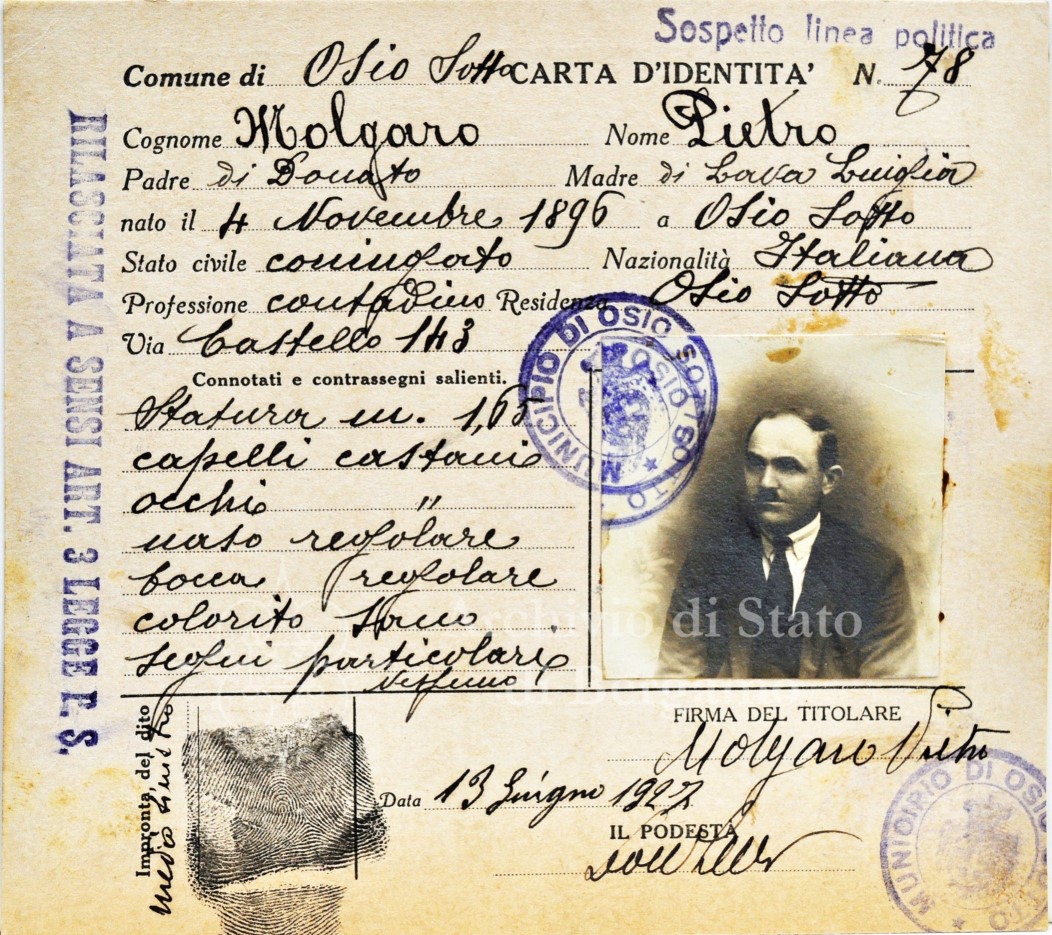 Sospetto linea politica
Comune di Osio Sotto CARTA D'IDENTITA' N. 78
Cognome Molgaro Nome Pietro
Padre di Donato Madre di Lava Luigia
nato il 4 Novembre 1896 a Osio Sotto
Stato civile coniugato Nazionalità Italiana
Professione contadino Residenza Osio Sotto
Via Castello 143
Connotati e contrassegni salienti.
Statura m. 1,65
capelli castani
occhi "
naso regolare
bocca regolare
colorito sano
segni particolari
nessuno
RILASCIATA A SENSI ART. 3 LEGGE P. S.
MUNICIPIO DI OSIO SOTTO
OSIO SOTTO
Archivio di Stato
di Bergamo
FIRMA DEL TITOLARE
Molgaro Pietro
Impronta del dito
medio sinistro
Data 13 Giugno 1927
IL PODESTÀ
MUNICIPIO DI OSIO